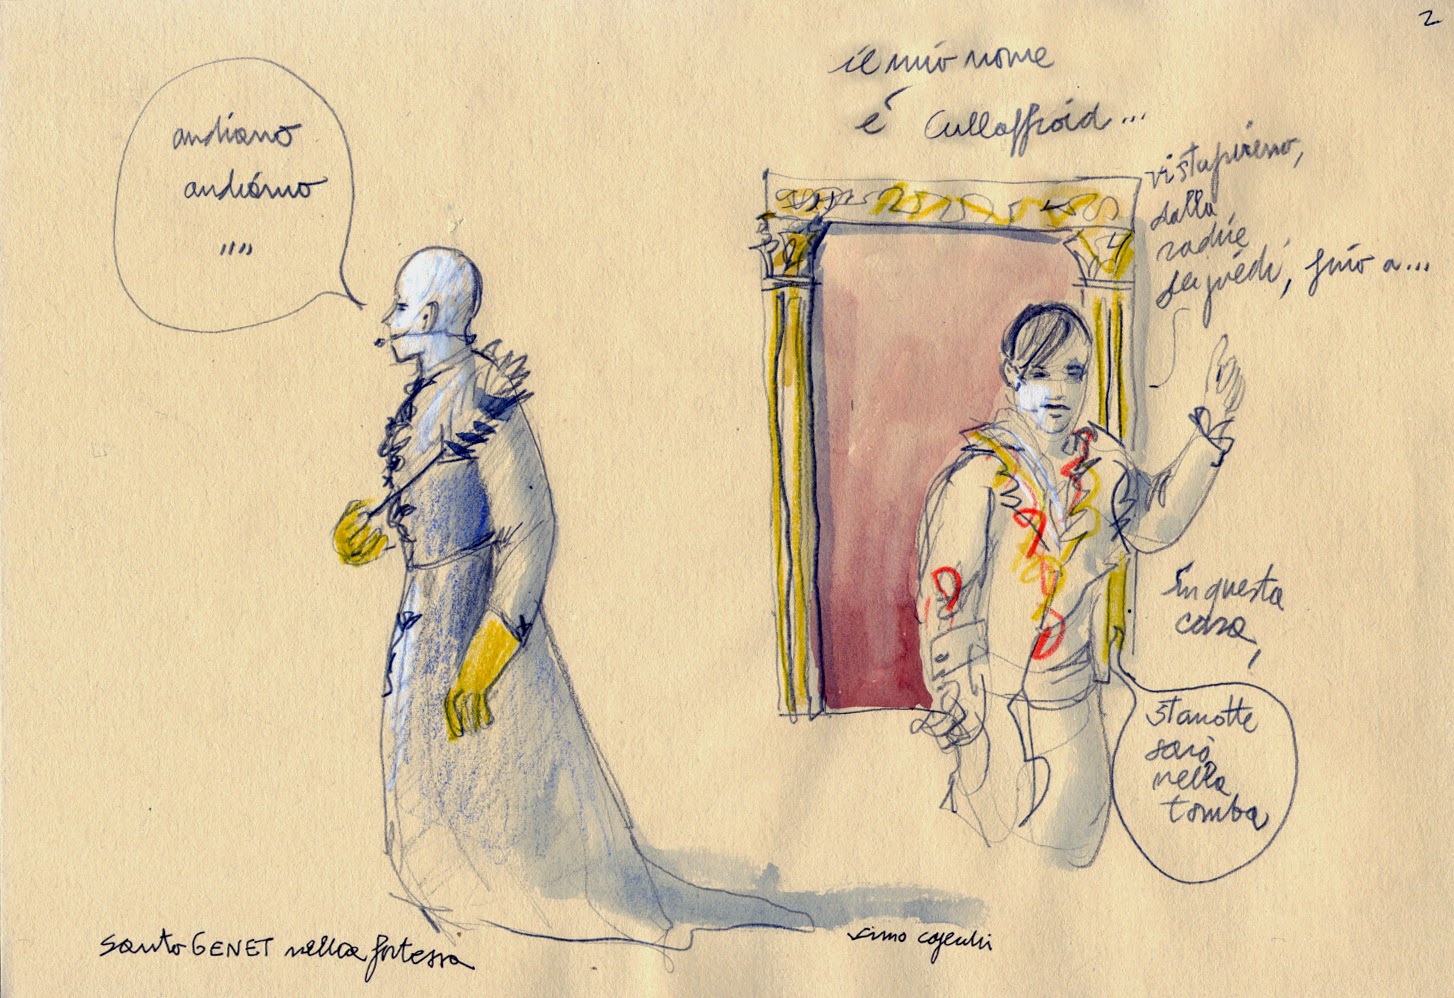 2
andiamo
andiamo
....
il mio nome
è Cullaffroid...
vi stupiremo,
dalla
radice
dei piedi, fino a...
in questa
casa,
stanotte
sarò
nella
tomba
santo GENET nella fortezza